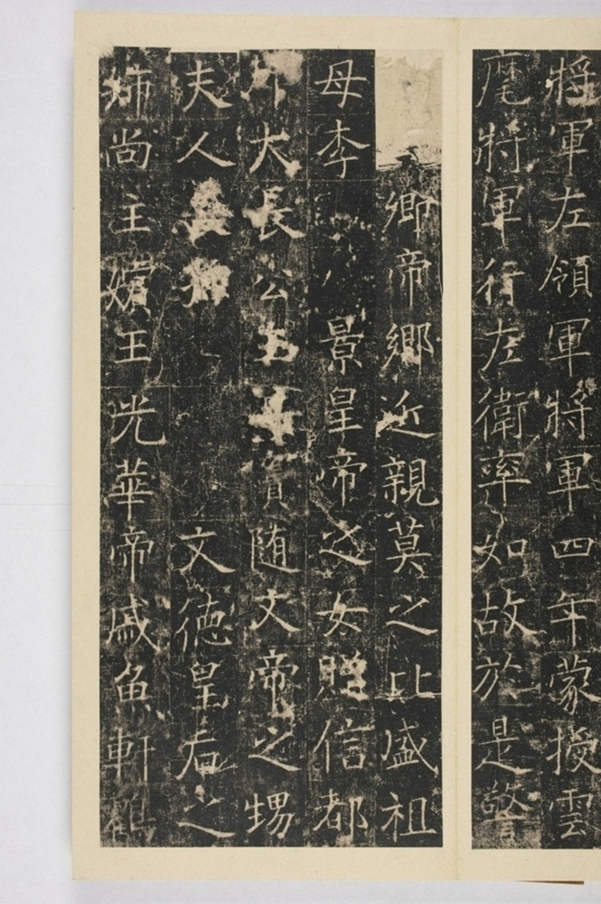 將軍左領軍將軍四年蒙授雲
麾將軍行左衛率如故於是警
卿帝鄉近親莫之比盛祖
母李景皇帝之女贈信都
大長公主實随文帝之甥
夫人文德皇后之
姊尚主嬪王光華帝戚魚軒鶴